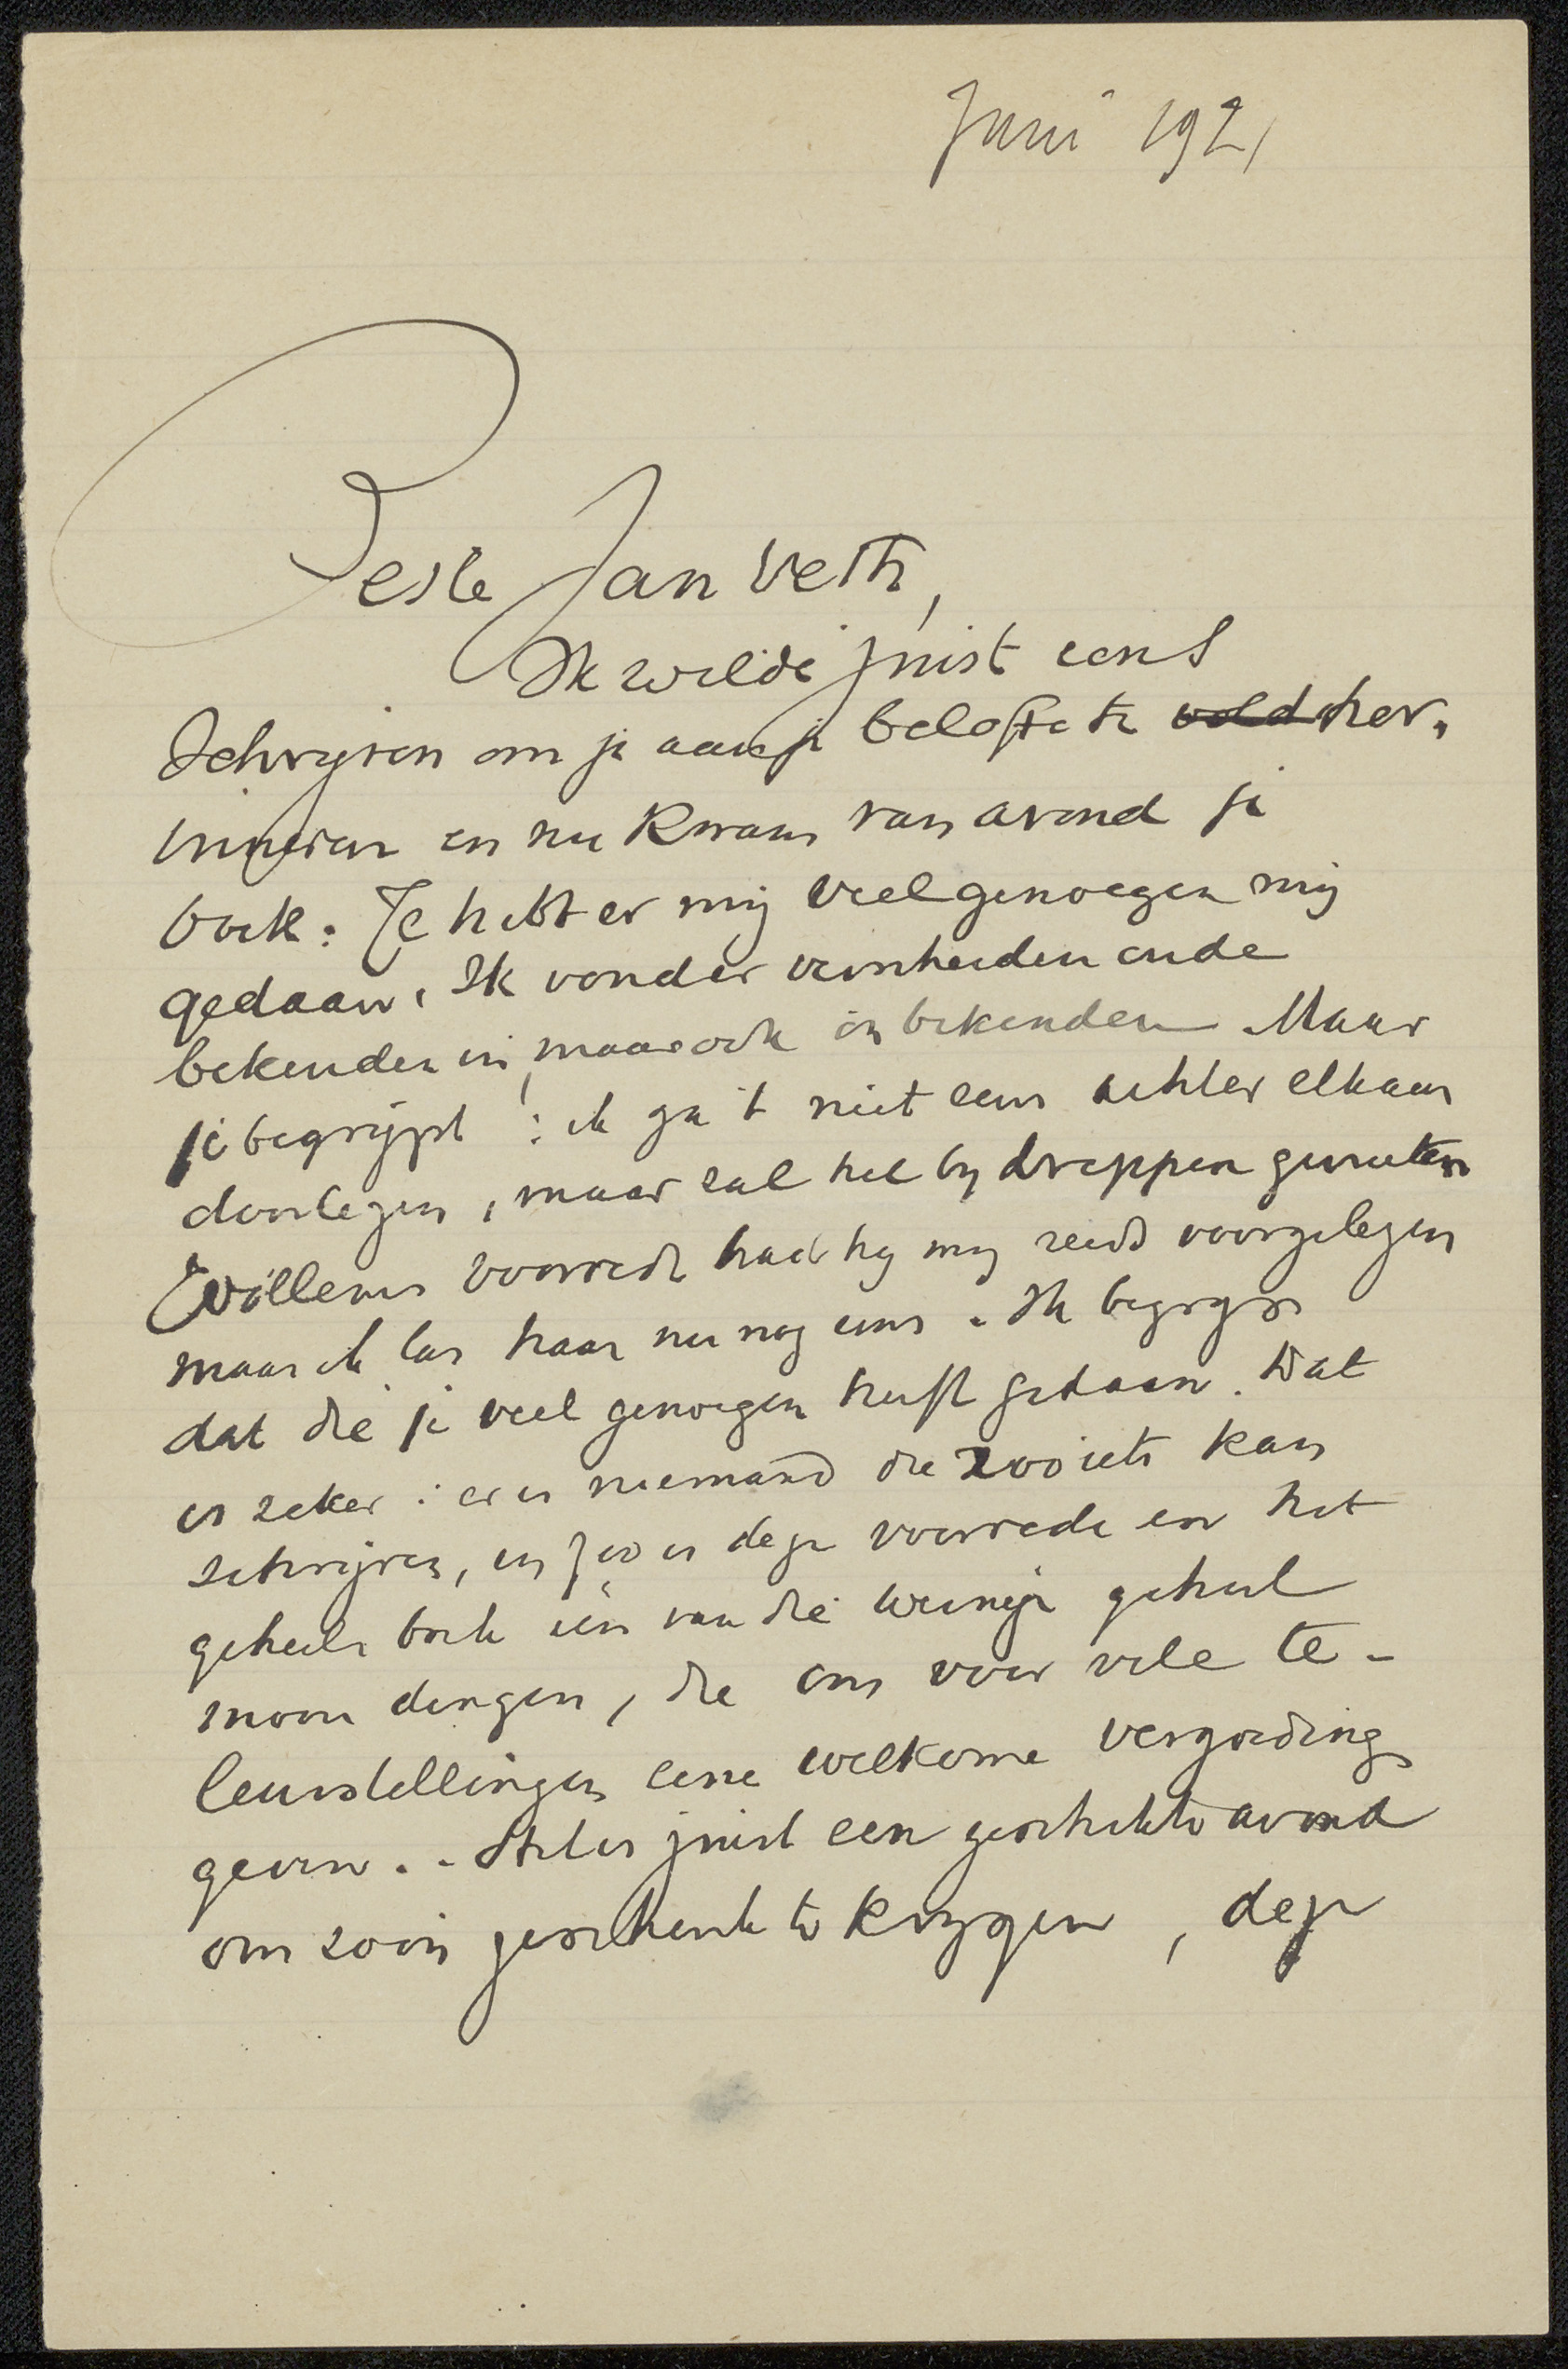 Juni 1921
Beste Jan Veth,
Ik wilde juist eens
schrijven om je aan je belofte te vold her-
inneren en nu kwam van avond je
boek. Je hebt er mij veel genoegen mij
gedaan. Ik vond er verscheiden oude
bekenden in, maar ook onbekenden. Maar
je begrijpt: ik ga 't niet eens achter elkaar
doorlezen, maar zal het bij droppen genieten
Willems voorrede had hij mij reeds voorgelezen
maar ik las haar nu nog eens. Ik begrijp
dat die je veel genoegen heeft gedaan. Dat
is zeker: er is niemand die zoo iets kan
schrijven, en zoo is deze voorrede en het
geheele boek één van die weinige geheel
mooie dingen, die ons voor vele te-
leurstellingen eene welkome vergoeding
geven. - Het is juist een geschikte avond
om zoo'n geschenk te krijgen, deze